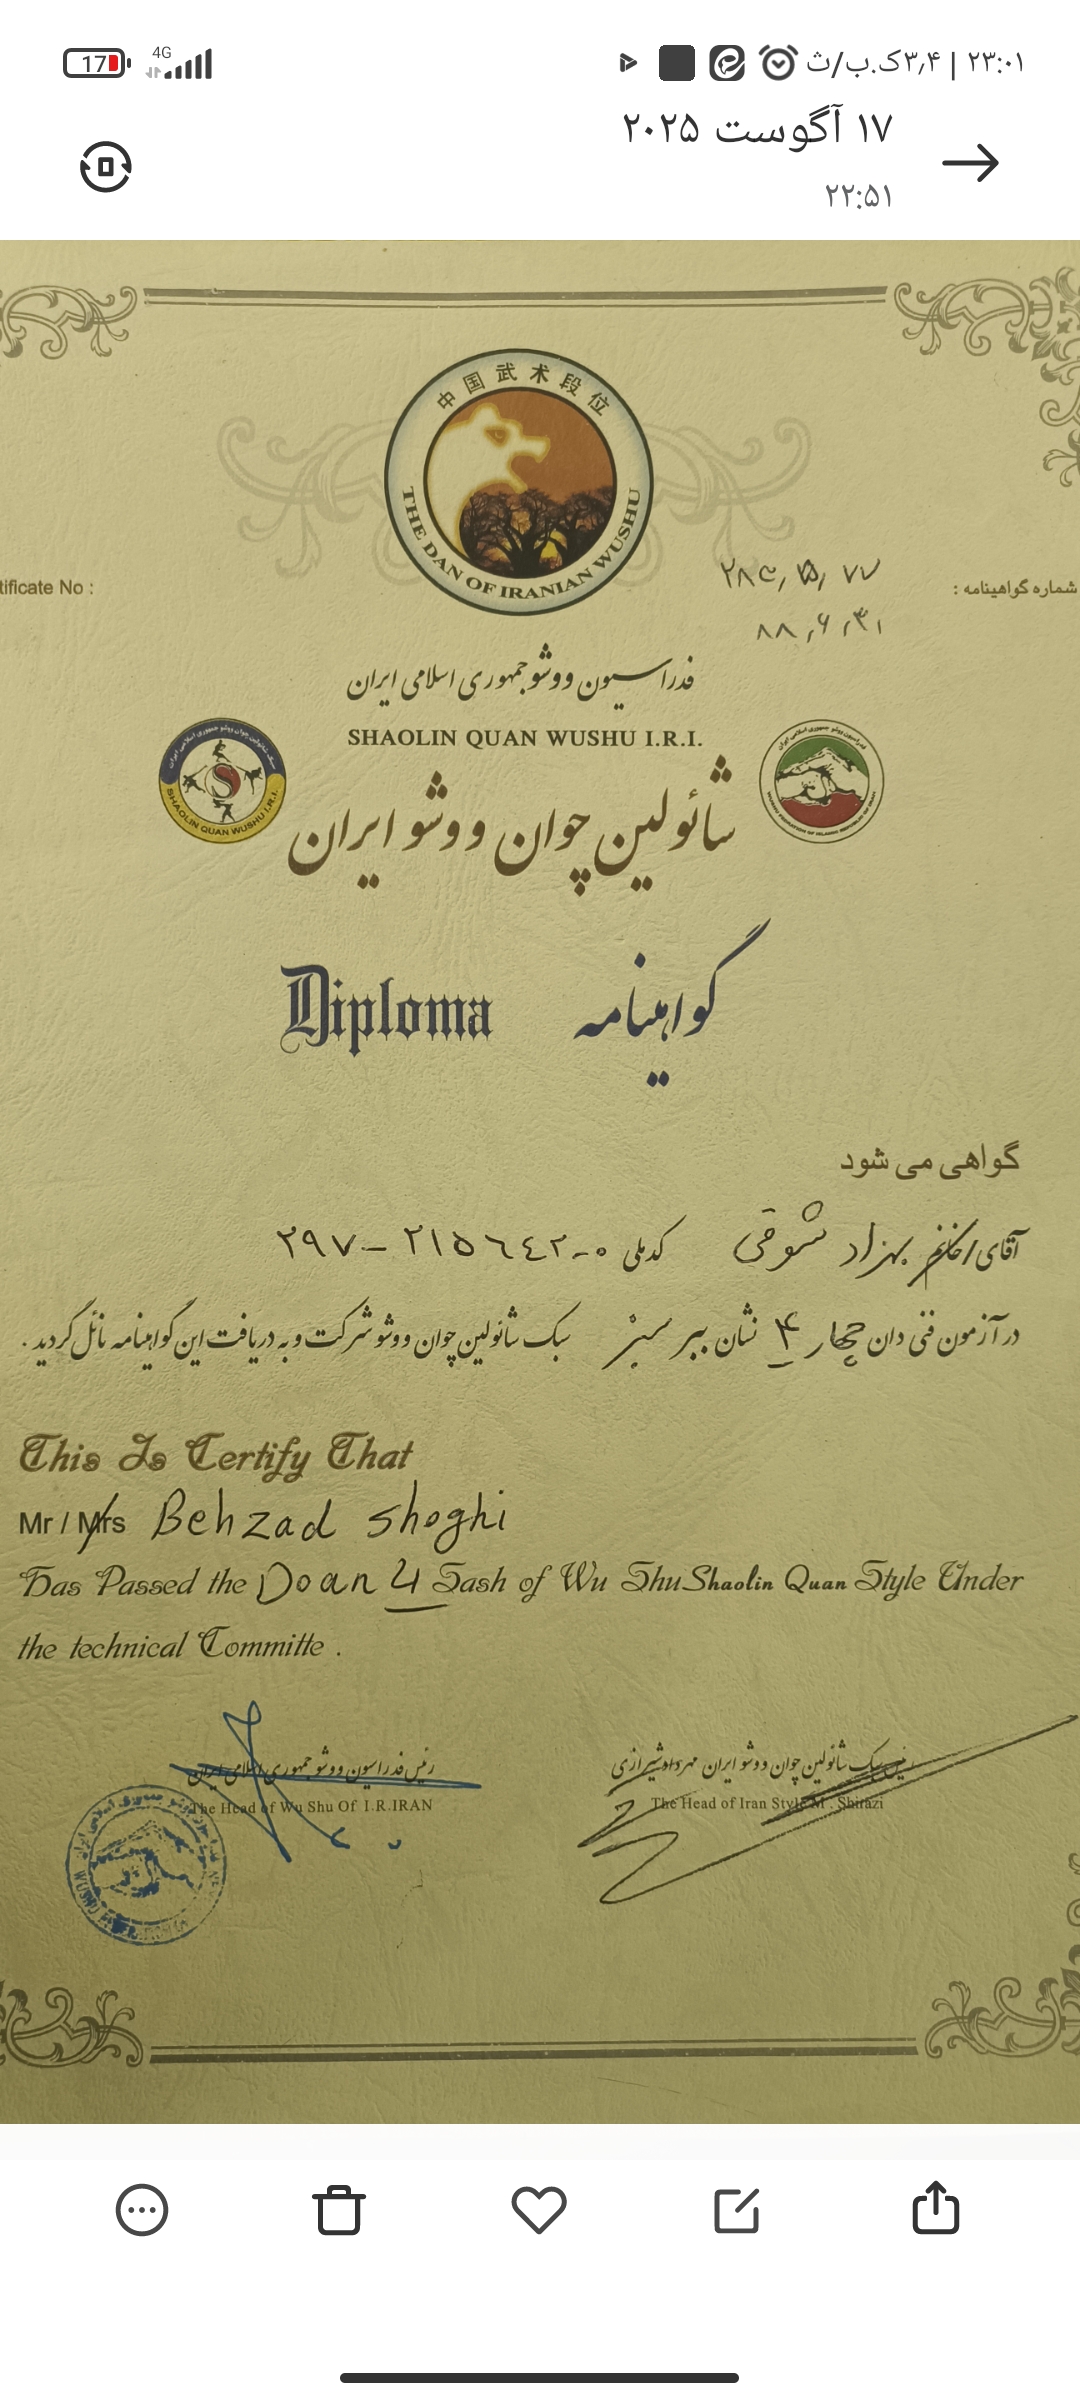 ۲۳:۰۱ | ۳٫۴ک.ب/ث
4G
17
۱۷ آگوست ۲۰۲۵
۲۲:۵۱
中国武术段位
THE DAN OF IRANIAN WUSHU
tificate No :
شماره گواهینامه :
۸۸٫۶٫۳۱
فدراسیون ووشو جمهوری اسلامی ایران
SHAOLIN QUAN WUSHU I.R.I.
SHAOLIN QUAN WUSHU I.R.I.
شائولین چوان ووشو ایران
Diploma
گواهینامه
گواهی می شود
آقای/خانم بهزاد شوقی کدملی ۲۹۷-۲۱۵۶۴۲-۰
در آزمون فنی دان چهار ۴ نشان ببر سبز سبک شائولین چوان ووشو شرکت و به دریافت این گواهینامه نائل گردید .
This Is Certify That
Mr / Mrs Behzad shoghi
Has Passed the Doan 4 Sash of Wu Shu Shaolin Quan Style Under
the technical Committe .
رئیس فدراسیون ووشو جمهوری اسلامی ایران
The Head of Wu Shu Of I.R.IRAN
رئیس سبک شائولین چوان ووشو ایران مهرداد شیرازی
The Head of Iran Style M . Shirazi